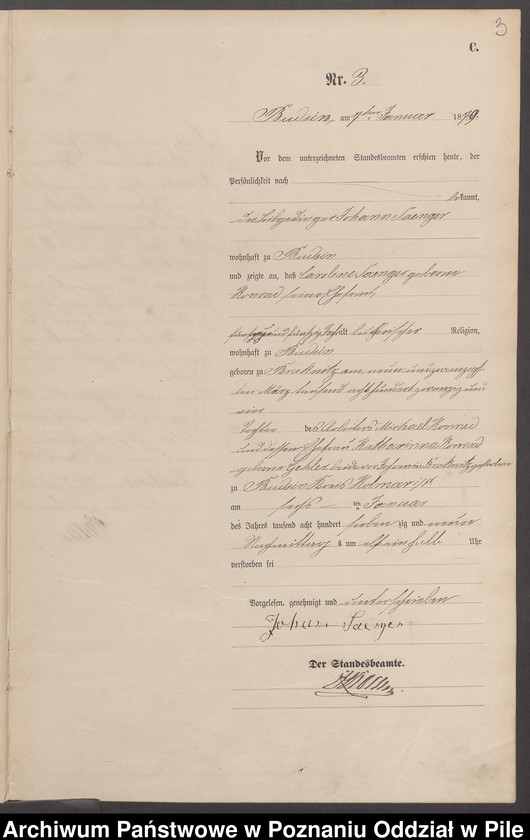 3
C.
Nr. 3.
Budsin, am 7ten Januar 1879.
Vor dem unterzeichneten Standesbeamten erschien heute, der
Persönlichkeit nach
bekannt,
der Leibgedinger Johann Saenger
wohnhaft zu Budsin
und zeigte an, daß Caroline Saenger geborne
Konrad seine Ehefrau,
alt lutherischer Religion,
wohnhaft zu Budsin
geboren zu am neun und zwanzigs
ten März tausend achthundert zwanzig und
vier
Tochter des Arbeiters Michael Konrad
und dessen Ehefrau Katharinna Konrad
geborne beide verstorben
zu Budsin Kreis Kolmar i/P
am sechs ten Januar
des Jahres tausend acht hundert sieben zig und neun
Nachmittag s um elf einhalb Uhr
verstorben sei
Vorgelesen, genehmigt und unterschrieben
Johann Saenger
Der Standesbeamte.
Archiwum Państwowe w Poznaniu Oddział w Pile